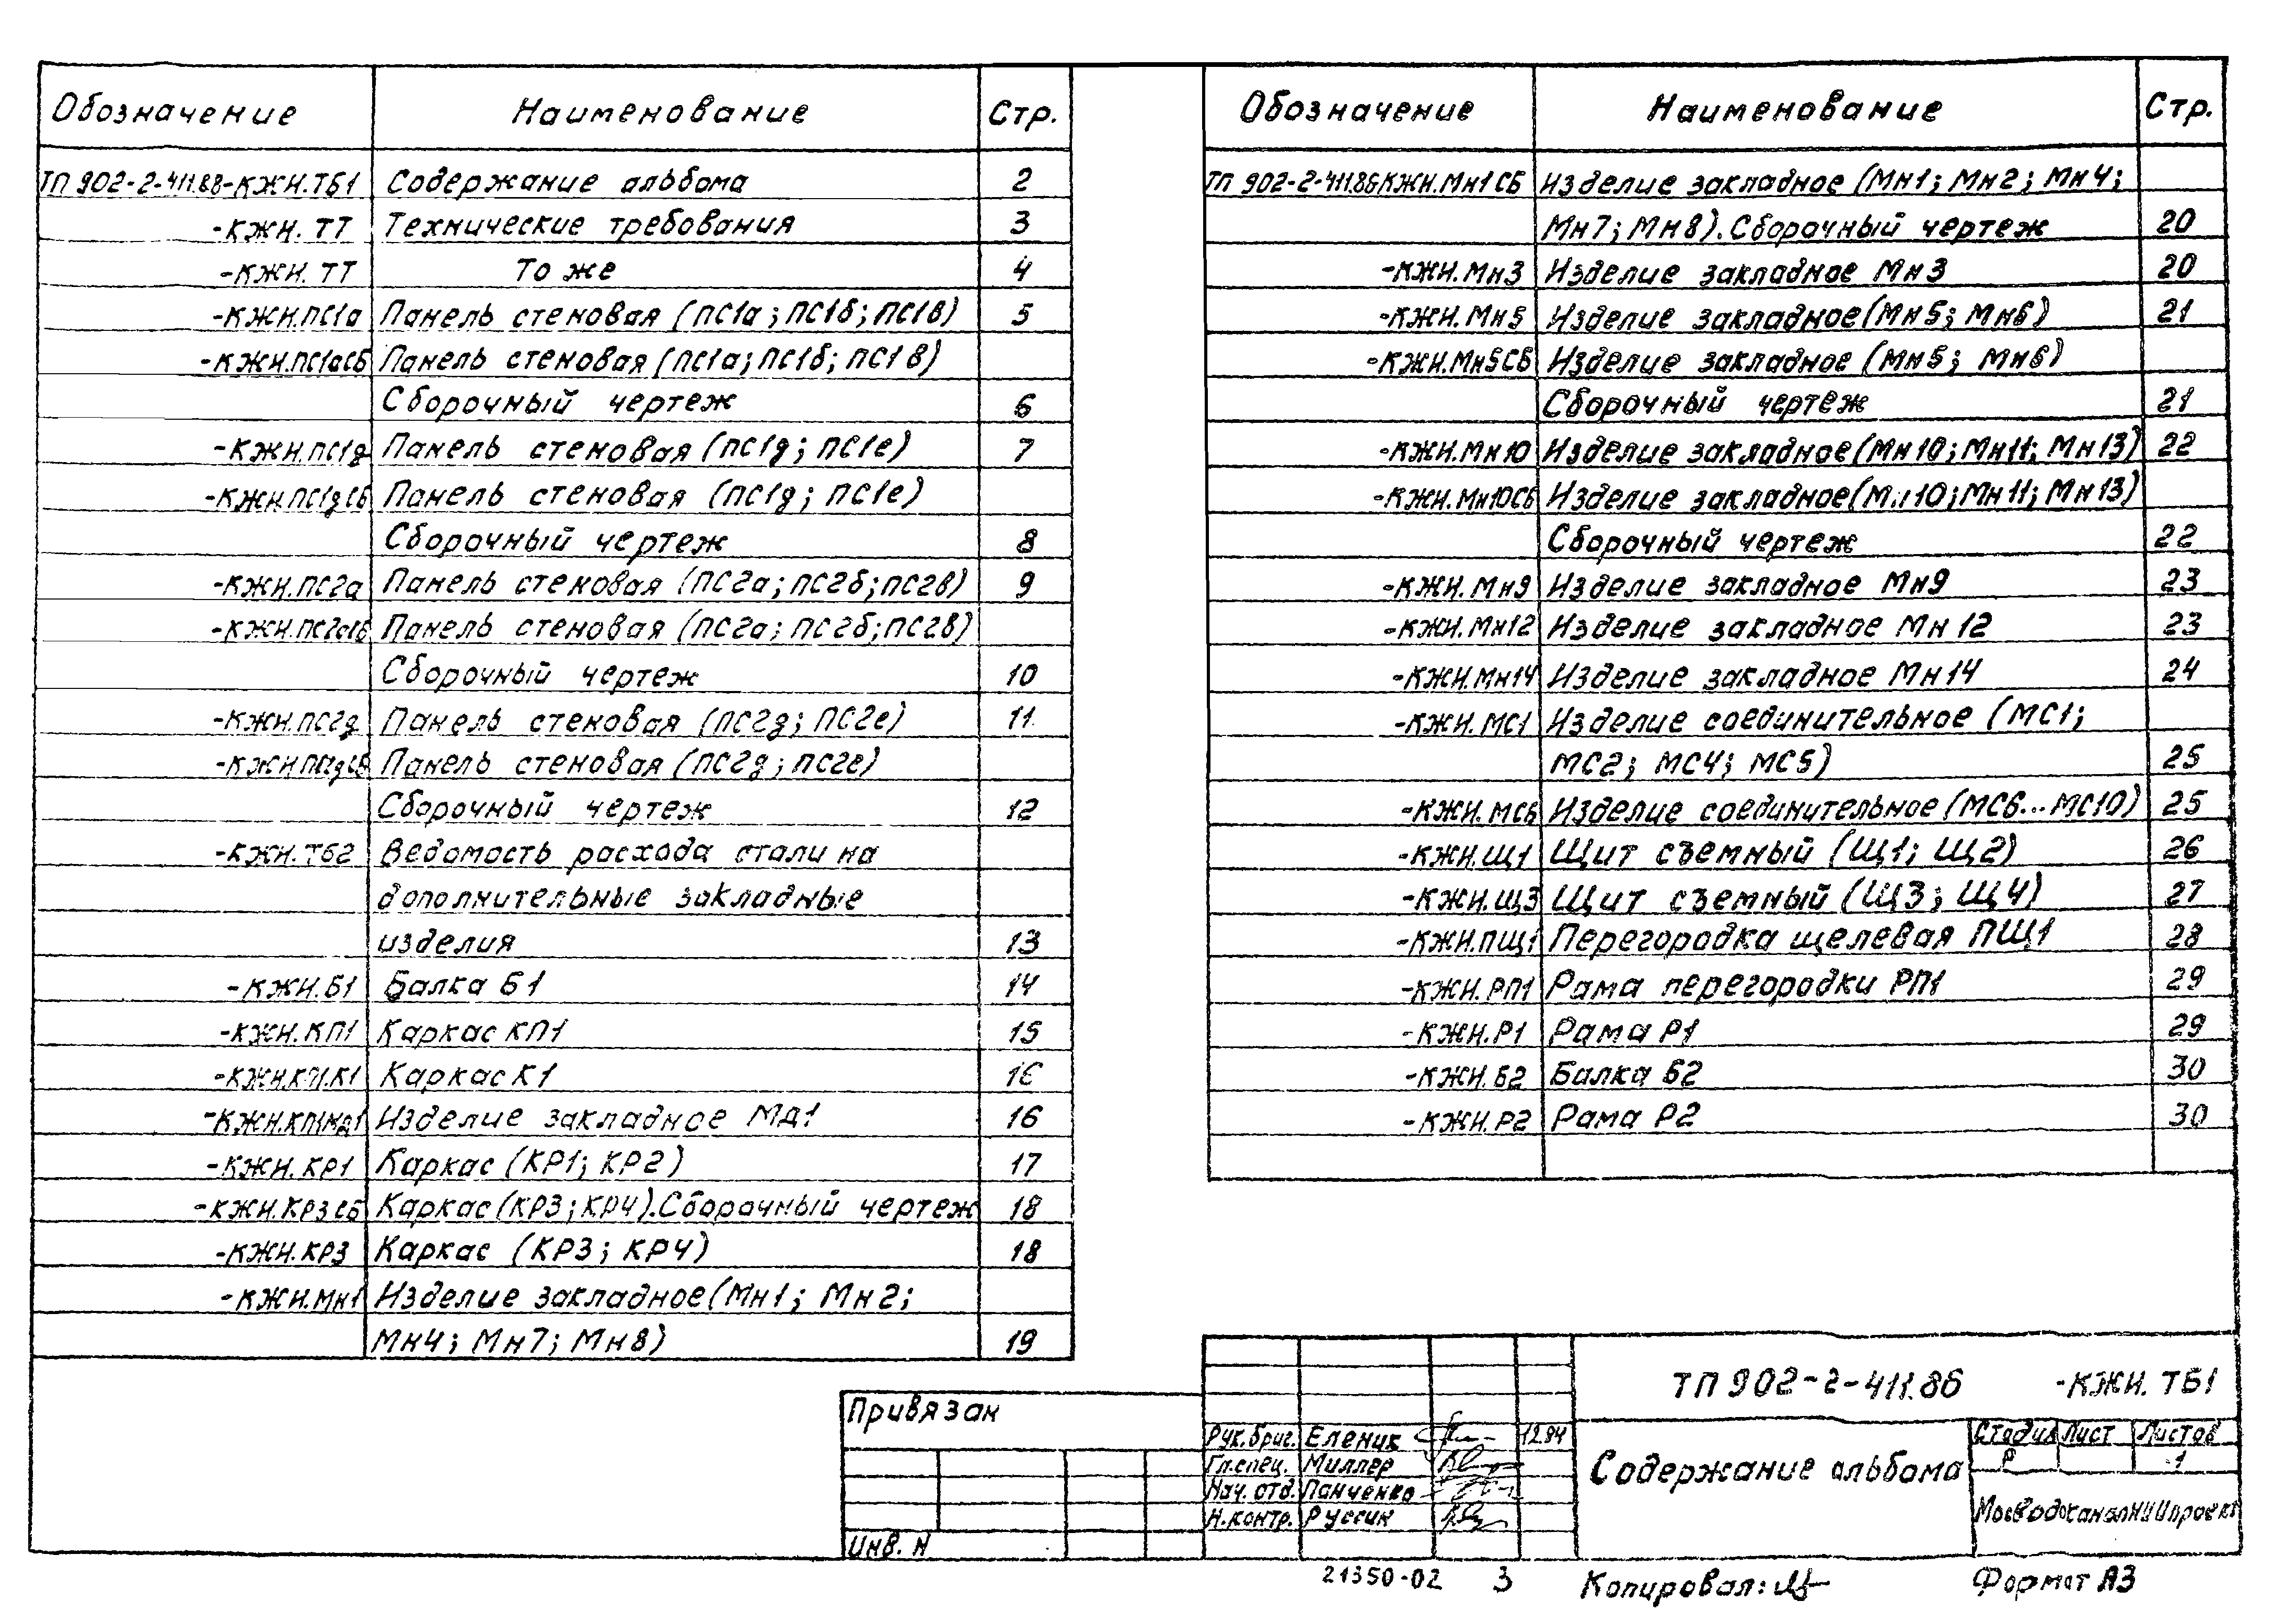 Обозначение Наименование Стр.
ТП 902-2-411.86-КЖИ.ТБ1 Содержание альбома 2
-КЖИ. ТТ Технические требования 3
-КЖИ. ТТ То же 4
-КЖИ.ПС1а Панель стеновая (ПС1а; ПС1б; ПС1в) 5
-КЖИ.ПС1аСБ Панель стеновая (ПС1а; ПС1б; ПС1в)
Сборочный чертеж 6
-КЖИ.ПС1д Панель стеновая (ПС1д; ПС1е) 7
-КЖИ.ПС1дСБ Панель стеновая (ПС1д; ПС1е)
Сборочный чертеж 8
-КЖИ.ПС2а Панель стеновая (ПС2а; ПС2б; ПС2в) 9
-КЖИ.ПС2аСБ Панель стеновая (ПС2а; ПС2б; ПС2в)
Сборочный чертеж 10
-КЖИ.ПС2д Панель стеновая (ПС2д; ПС2е) 11
-КЖИ.ПС2дСБ Панель стеновая (ПС2д; ПС2е)
Сборочный чертеж 12
-КЖИ.ТБ2 Ведомость расхода стали на
дополнительные закладные
изделия 13
-КЖИ.Б1 Балка Б1 14
-КЖИ.КП1 Каркас КП1 15
-КЖИ.КП1.К1 Каркас К1 16
-КЖИ.КП1МД1 Изделие закладное МД1 16
-КЖИ.КР1 Каркас (КР1; КР2) 17
-КЖИ.КР3СБ Каркас (КР3; КР4). Сборочный чертеж 18
-КЖИ.КР3 Каркас (КР3; КР4) 18
-КЖИ.Мн1 Изделие закладное (Мн1; Мн2;
Мн4; Мн7; Мн8) 19
Обозначение Наименование Стр.
ТП 902-2-411.86 КЖИ.Мн1СБ Изделие закладное (Мн1; Мн2; Мн4;
Мн7; Мн8). Сборочный чертеж 20
-КЖИ.Мн3 Изделие закладное Мн3 20
-КЖИ.Мн5 Изделие закладное (Мн5; Мн6) 21
-КЖИ.Мн5СБ Изделие закладное (Мн5; Мн6)
Сборочный чертеж 21
-КЖИ.Мн10 Изделие закладное (Мн10; Мн11; Мн13) 22
-КЖИ.Мн10СБ Изделие закладное (Мн10; Мн11; Мн13)
Сборочный чертеж 22
-КЖИ.Мн9 Изделие закладное Мн9 23
-КЖИ.Мн12 Изделие закладное Мн12 23
-КЖИ.Мн14 Изделие закладное Мн14 24
-КЖИ.МС1 Изделие соединительное (МС1;
МС2; МС4; МС5) 25
-КЖИ.МС6 Изделие соединительное (МС6...МС10) 25
-КЖИ.Щ1 Щит съемный (Щ1; Щ2) 26
-КЖИ.Щ3 Щит съемный (Щ3; Щ4) 27
-КЖИ.ПЩ1 Перегородка щелевая ПЩ1 28
-КЖИ.РП1 Рама перегородки РП1 29
-КЖИ.Р1 Рама Р1 29
-КЖИ.Б2 Балка Б2 30
-КЖИ.Р2 Рама Р2 30
Привязан
Инв. N
Рук.бриг. Еленик 12.84
Гл.спец. Миллер
Нач. отд. Панченко
Н.контр. Руссин
ТП 902-2-411.86 -КЖИ.ТБ1
Содержание альбома
Стадия Лист Листов
Р 1
МосводоканалНИИпроект
21350-02 3
Копировал:
Формат А3